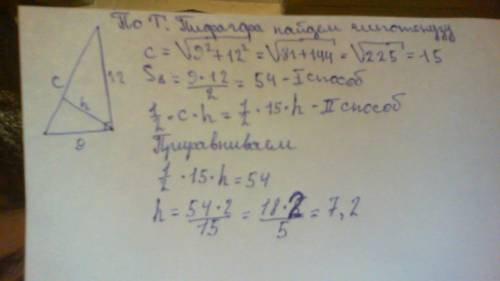 По Т. Пифагра найдем гипотенузу
c = √9²+12² = √81+144 = √225 = 15
S△ = 9·12/2 = 54 - I способ
1/2 · c · h = 1/2 · 15 · h - II способ
Приравниваем
1/2 · 15 · h = 54
h = 54·2/15 = 18·2/5 = 7,2
c
12
h
9